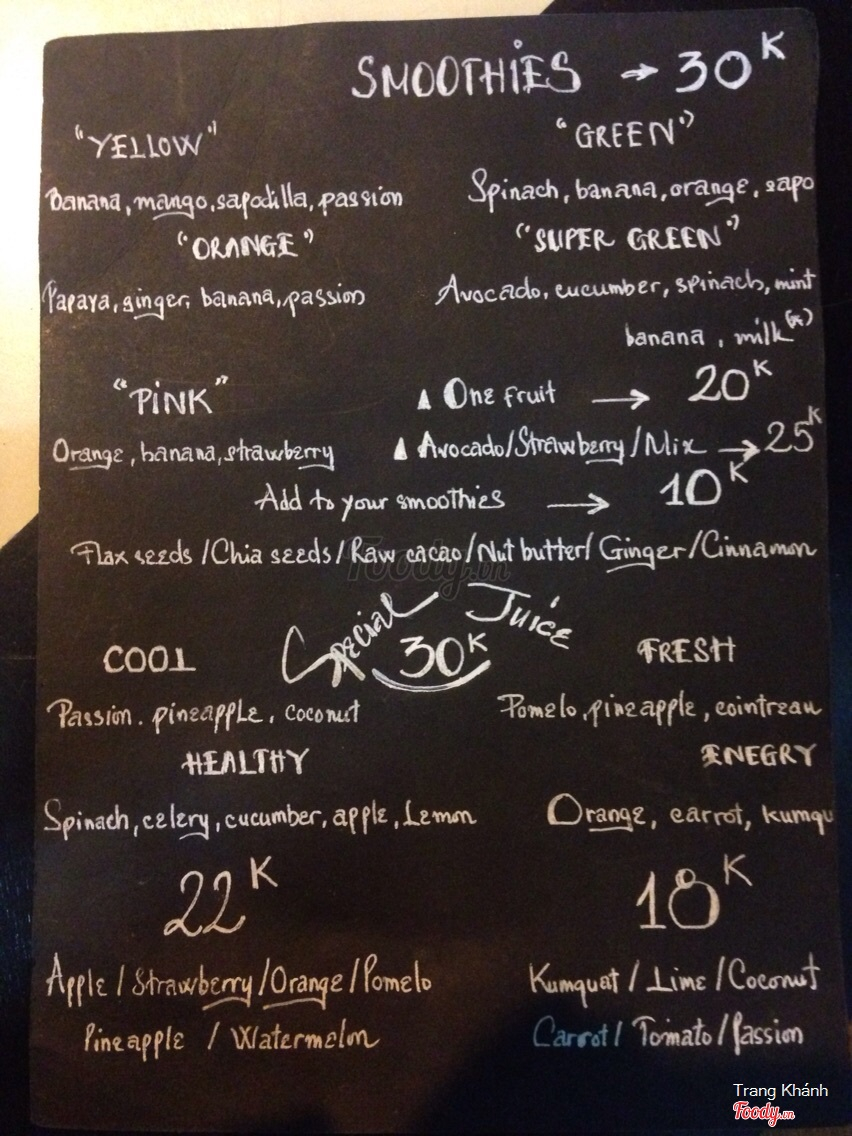 SMOOTHIES → 30K
"YELLOW"
Banana, mango, sapodilla, passion
"GREEN"
Spinach, banana, orange, sapo
"ORANGE"
Papaya, ginger, banana, passion
"SUPER GREEN"
Avocado, cucumber, spinach, mint
banana, milk(*)
"PINK"
Orange, banana, strawberry
▲ One fruit → 20K
▲ Avocado/Strawberry/Mix → 25K
Add to your smoothies → 10K
Flax seeds / Chia seeds / Raw cacao / Nut butter / Ginger / Cinnamon
Foody.vn
Special Juice
30K
COOL
Passion, pineapple, coconut
FRESH
Pomelo, pineapple, cointreau
HEALTHY
Spinach, celery, cucumber, apple, Lemon
ENEGRY
Orange, carrot, kumqu
22K
Apple / Strawberry / Orange / Pomelo
Pineapple / Watermelon
18K
Kumquat / Lime / Coconut
Carrot / Tomato / Passion
Trang Khánh
Foody.vn